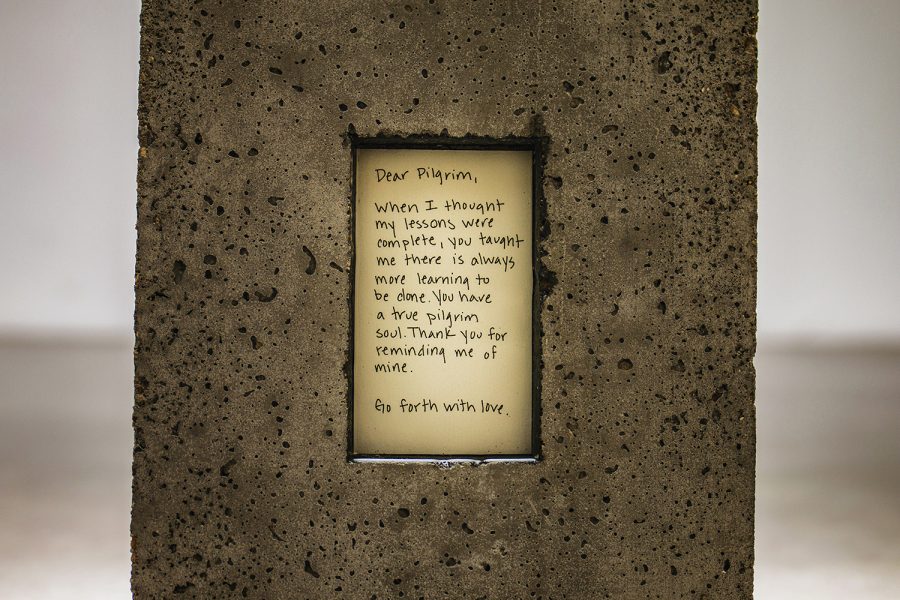 Dear Pilgrim,
When I thought
my lessons were
complete, you taught
me there is always
more learning to
be done. You have
a true pilgrim
soul. Thank you for
reminding me of
mine.
Go forth with love.